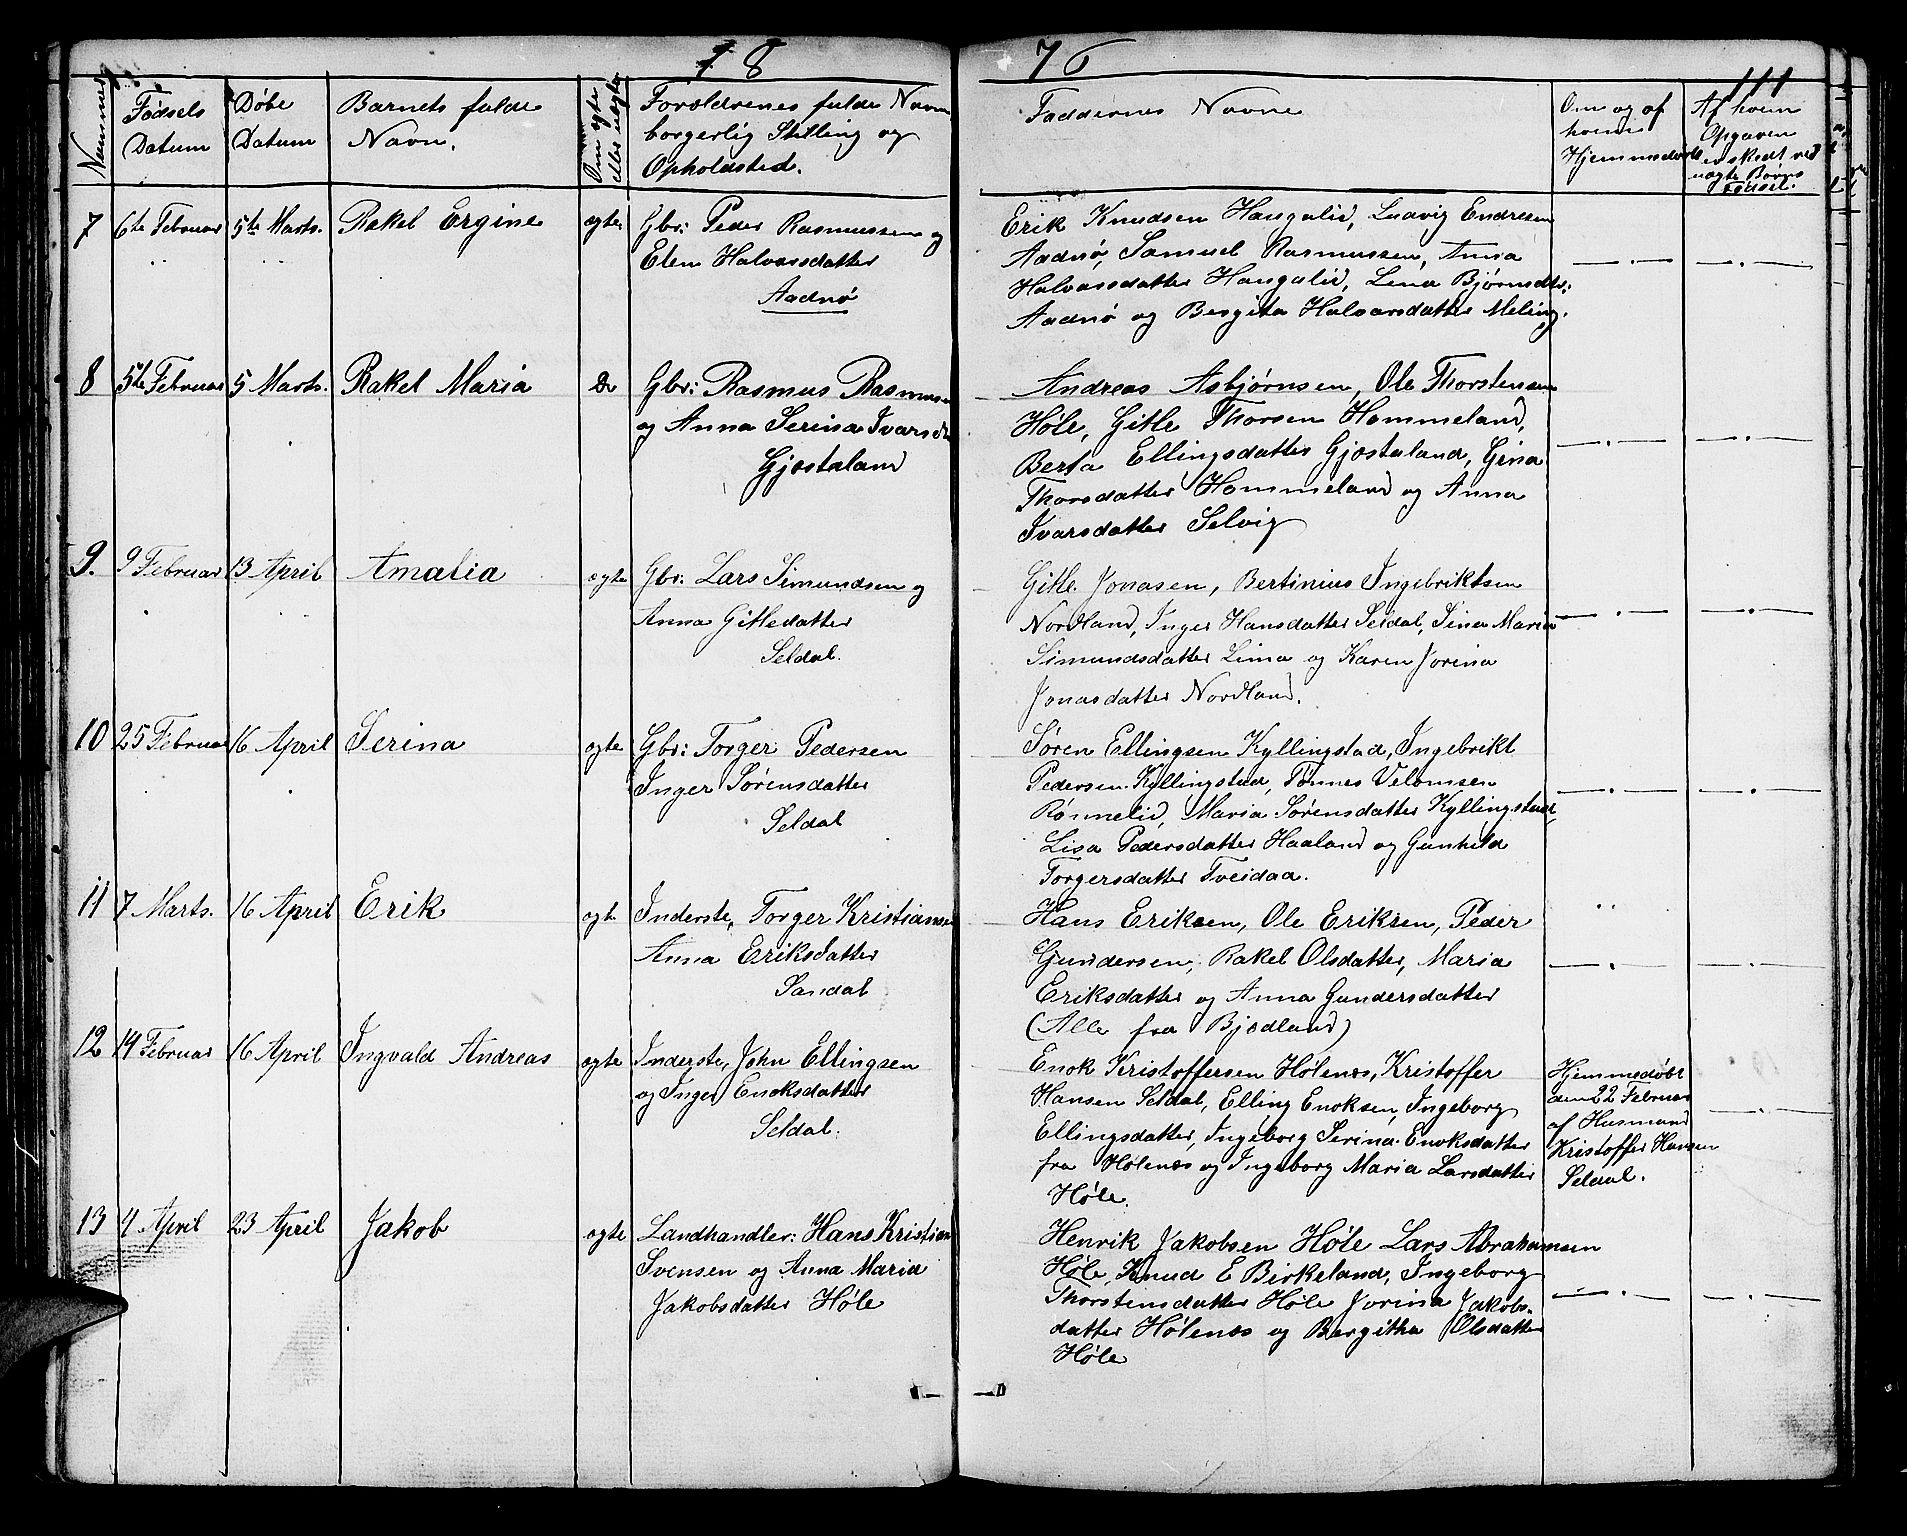 18 76
111
Nummer
Fødsels Datum
Døbe Datum
Barnets fulde Navn.
Om ægte eller uægte
Forældrenes fulde Navn
borgerlig Stilling og
Opholdsted.
Faddernes Navne
Om og af hvem Hjemmedøbt
Af hvem Opgaven er skedt ved uægte Børns Fødsel.
7 6te Februar 5te Marts. Rakel Ergine ægte. Gbr: Peder Rasmussen og
Elen Halvarsdatter
Aadnø
Erik Knudsen Haugalid, Ludvig Endresen
Aadnø, Samuel Rasmussen, Anna
Halvarsdatter Haugalid, Lina Bjørnsdtr:
Aadnø og Bergita Halvarsdatter Meling.
8 5te Februar 5 Marts. Rakel Maria Do Gbr: Rasmus Rasmussen
og Anna Serina Ivarsdr
Gjøstaland
Andreas Asbjørnsen, Ole Thorstensen
Høle, Gitle Thorsen Hommeland,
Berta Ellingsdatter Gjøstaland, Gina
Thorsdatter Hommeland og Anna
Ivarsdatter Selvig
9. 9 Februar 13 April Amalia ægte Gbr: Lars Simundsen og
Anna Gitledatter
Seldal.
Gitle Jonasen, Bertinius Ingebriktsen
Nordland, Inger Hansdatter Seldal, Sina Maria
Simundsdatter Lima og Karen Jorina
Jonasdatter Nordland.
10 25 Februar 16 April Serina ægte Gbr: Torger Pedersen
Inger Sørensdatter
Seldal
Søren Ellingsen Kyllingstad, Ingebrikt
Pedersen Kyllingstad, Tønnes Velomsen
Rønnelid, Maria Sørensdatter Kyllingstad,
Lisa Pedersdatter Haaland og Gunhild
Torgersdatter Tveidaa.
11 7 Marts. 16 April Erik ægte Inderste, Torger Kristiansen
Anna Eriksdatter
Sandal
Hans Eriksen, Ole Eriksen, Peder
Gundersen, Rakel Olsdatter, Maria
Eriksdatter og Anna Gundersdatter
(Alle fra Bjødland)
12 14 Februar 16 April Ingvald Andreas ægte Inderste, John Ellingsen
og Inger Enoksdatter
Seldal.
Enok Kristoffersen Hølenæs, Kristoffer
Hansen Seldal, Elling Enoksen, Ingeborg
Ellingsdatter, Ingeborg Serina Enoksdatter
fra Hølenæs og Ingeborg Maria Larsdatter
Høle.
Hjemmedøbt
den 22 Februar
af Husmand
Kristoffer Hansen
Seldal.
13 4 April 23 April Jakob ægte Landhandler: Hans Kristian
Svensen og Anna Maria
Jakobsdatter Høle
Henrik Jakobsen Høle Lars Abrahamsen
Høle, Knud E Birkeland, Ingeborg
Thorstensdatter Høle Jorina Jakobs-
datter Hølenæs og Bergitha Olsdatter
Høle